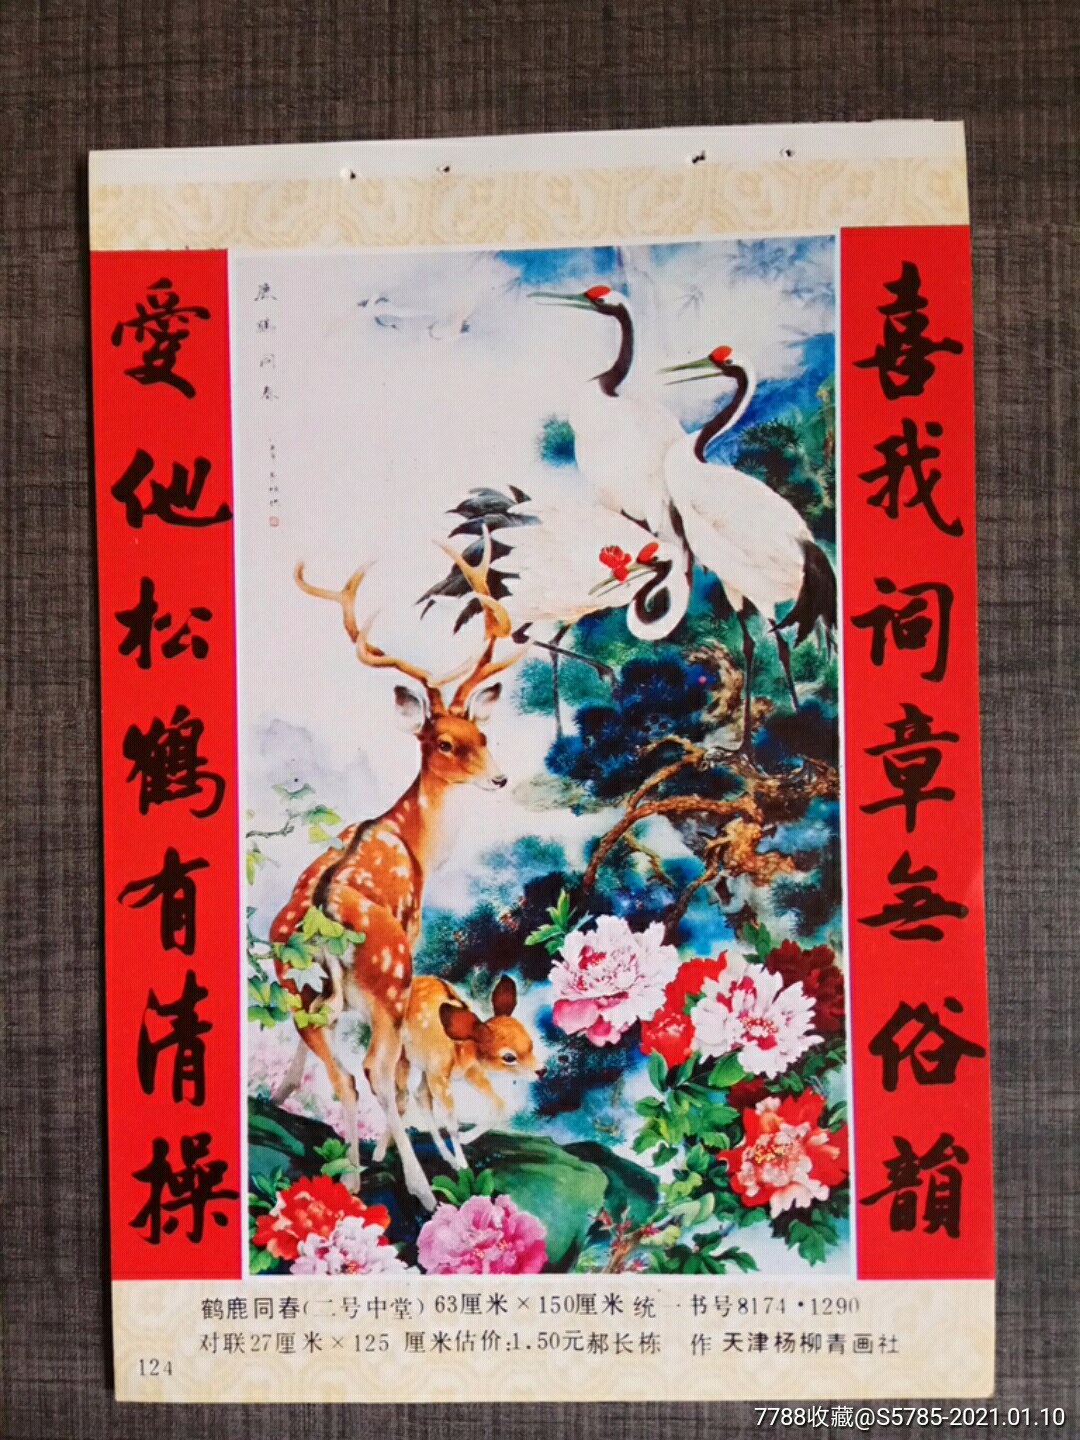 喜我词章無俗韻
愛他松鶴有清操
鹿鶴同春
鹤鹿同春(二号中堂) 63厘米×150厘米 统一书号8174·1290
对联27厘米×125 厘米估价:1.50元郝长栋 作 天津杨柳青画社
124
7788收藏@S5785-2021.01.10